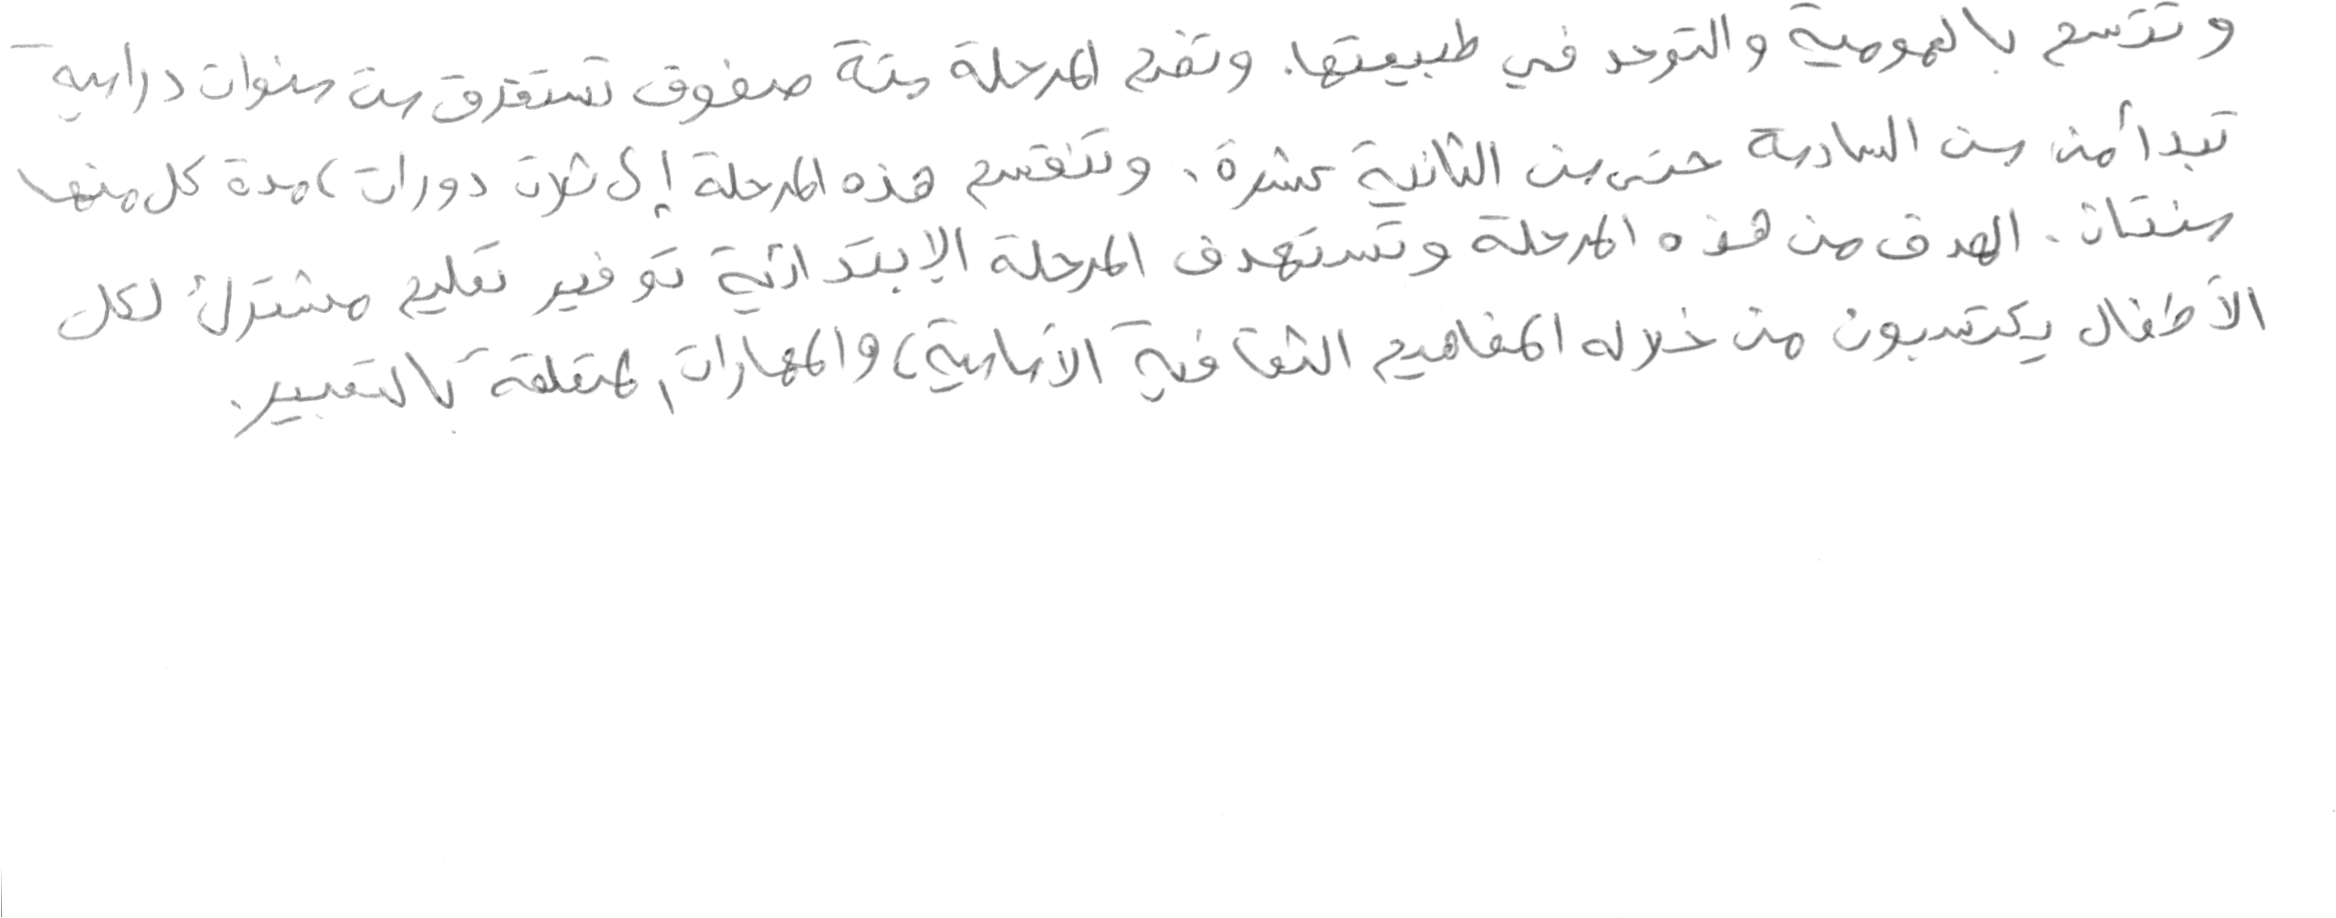 وتتسم بالعمومية والتوحد في طبيعتها. وتضم المرحلة ستة صفوف تستغرق ست سنوات دراسية
تبدأ من سن السادسة حتى سن الثانية عشرة. وتنقسم هذه المرحلة إلى ثلاث دورات، مدة كل منها
سنتان. الهدف من هذه المرحلة وتستهدف المرحلة الإبتدائية توفير تعليم مشترك لكل
الأطفال يكتسبون من خلاله المفاهيم الثقافية الأساسية، والمهارات المتعلقة بالتعبير.